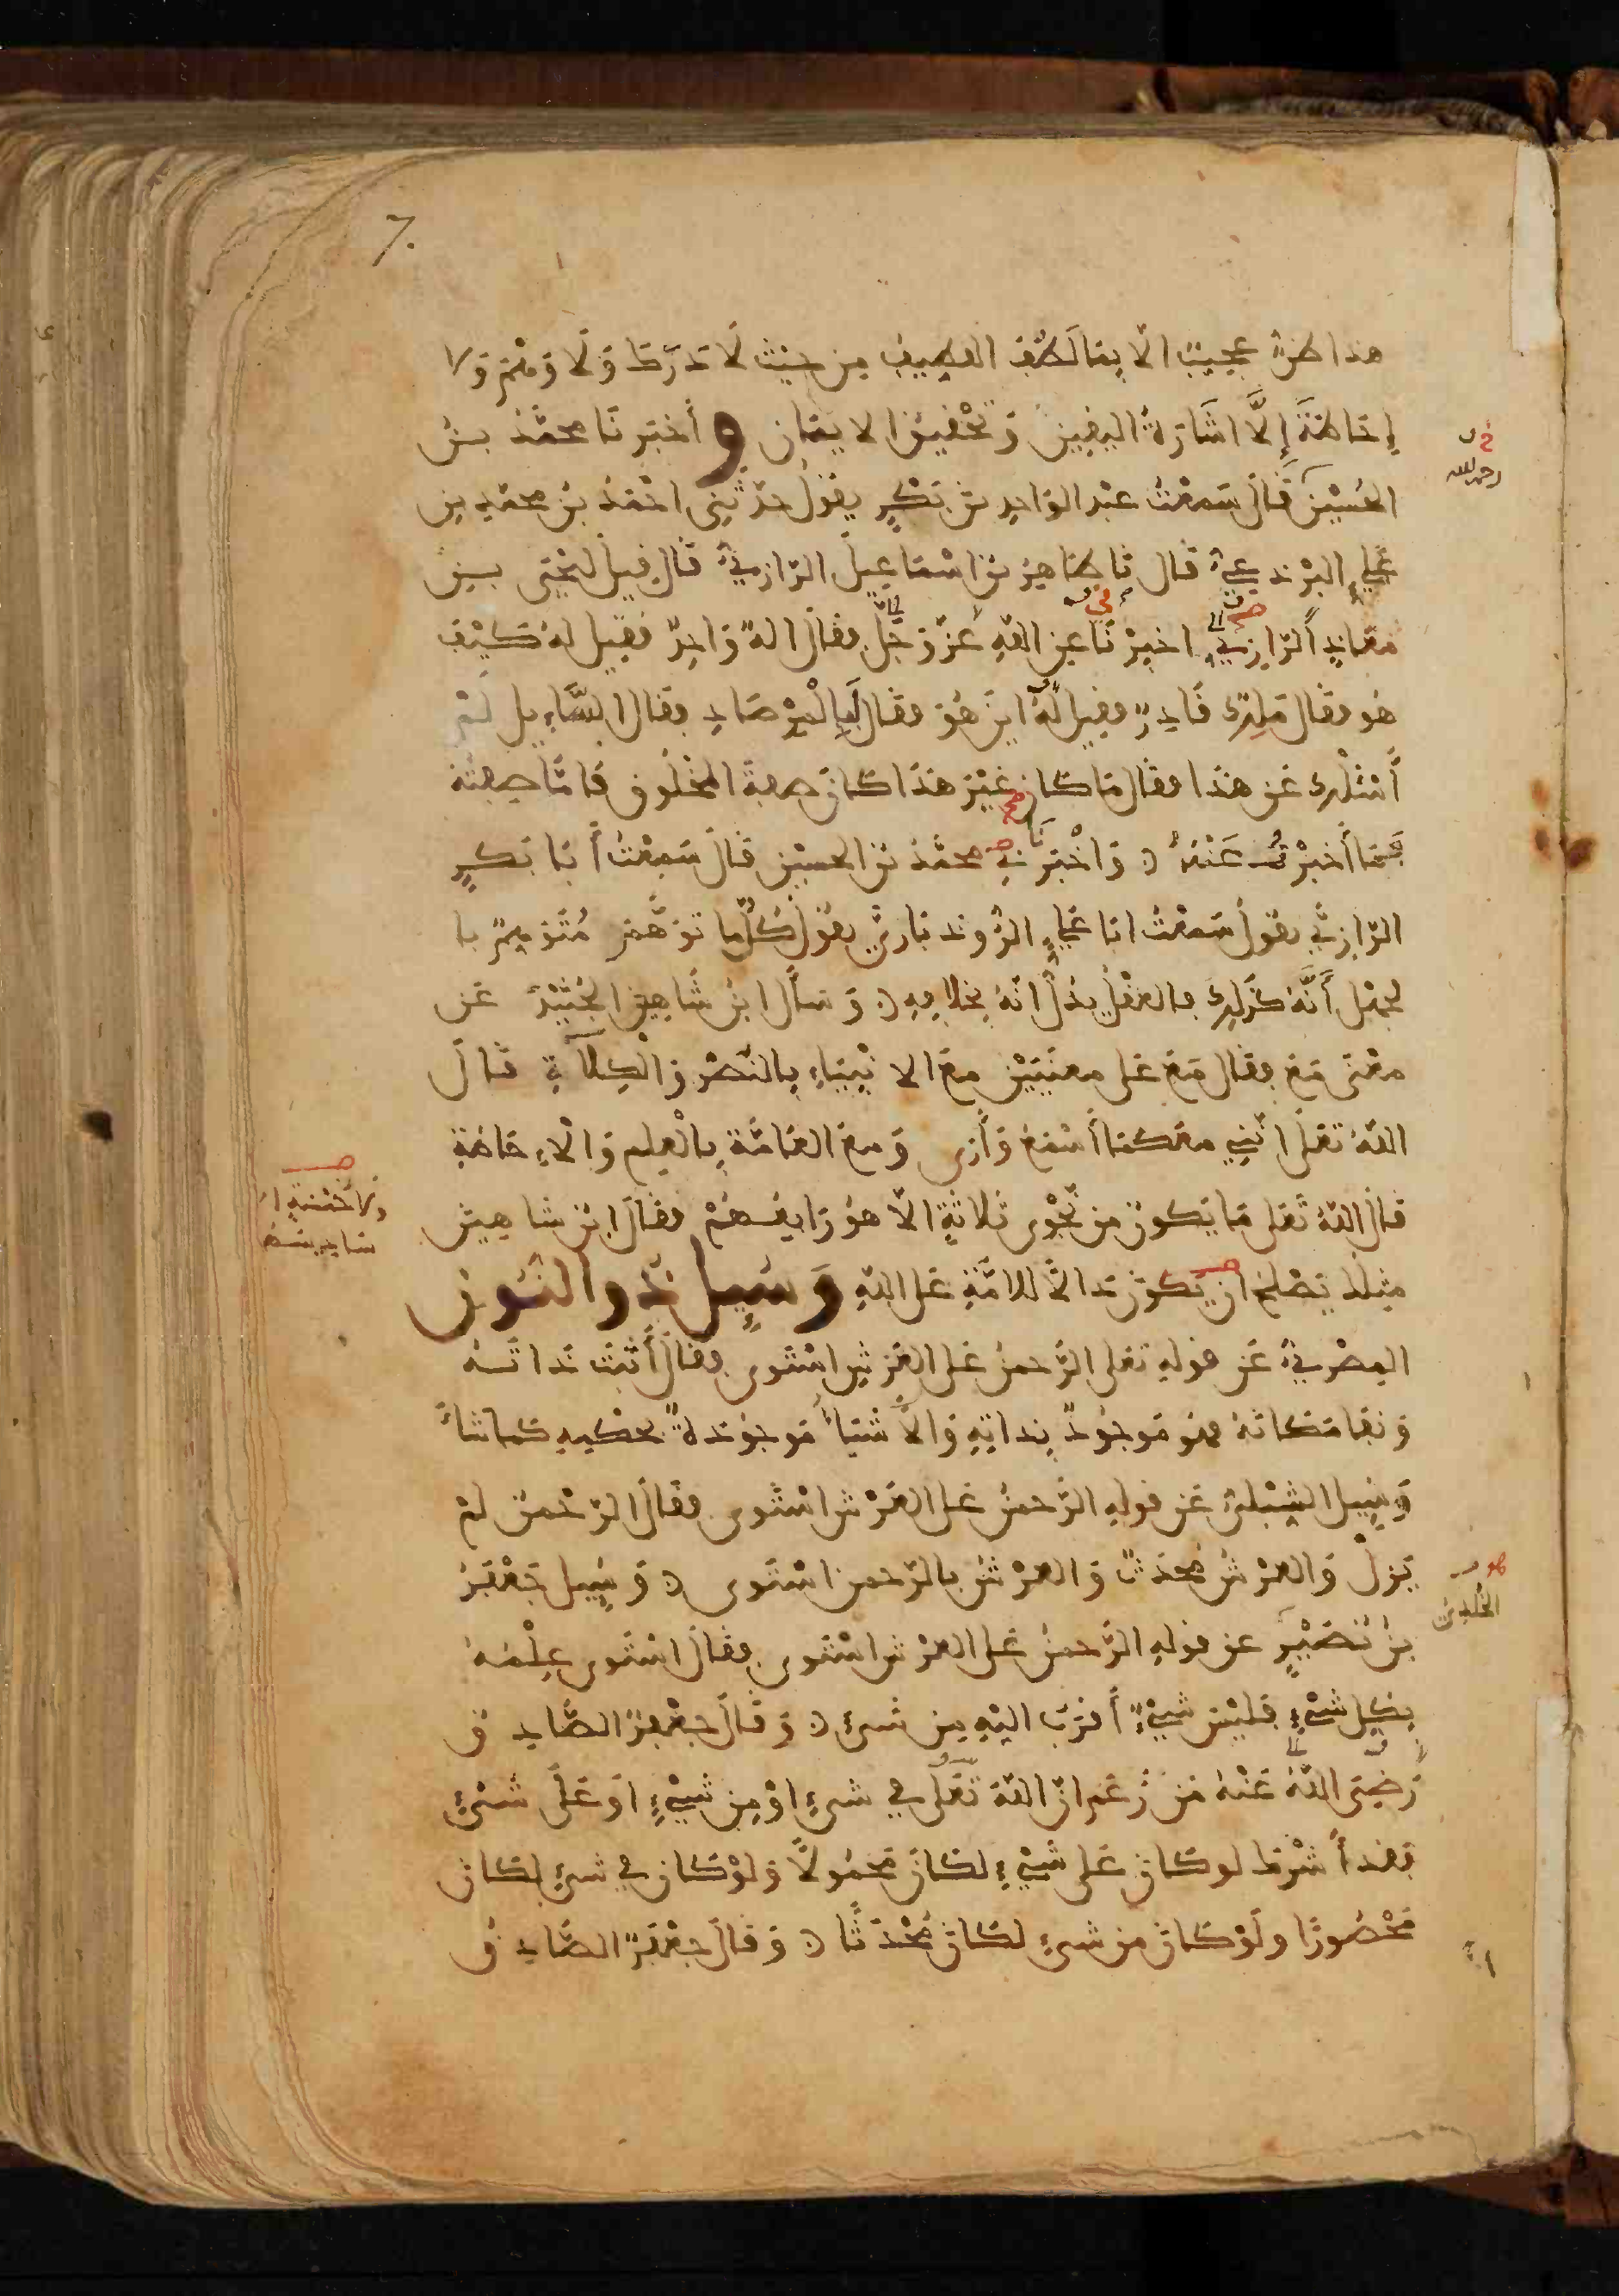 7.
هذا ظن عجيب الا بما لطف اللطيف من حيث لا درك ولا وهم ولا
إحاطة إلا اشارة اليقين وتحقيق الايمان وأخبرنا محمد بن
رحمه الله
الحسين قال سمعت عبد الواحد بن بكر يقول حدثني احمد بن محمد بن
علي البرذعي قال نا طاهر بن اسماعيل الرازي قال قيل ليحيى بن
معاذ الرازي اخبرنا عن الله عز وجل فقال اله واحد فقيل له كيف
هو فقال ملك قادر فقيل له اين هو فقال لبالمرصاد فقال السائل لم
أسئلك عن هذا فقال ما كان غير هذا كان صفة المخلوق فاما صفته
فما أخبرتك عنه واخبرنا محمد بن الحسين قال سمعت أبا بكر
الرازي يقول سمعت ابا علي الروذباري يقول كلما توهم متوهم با
لجهل أنه كذلك فالعقل يدل انه بخلافه وسأل ابن شاهين الجنيد عن
معنى مع فقال مع على معنيين مع الانبياء بالنصر والكلآة قال
الله تعلى انني معكما أسمع وأرى ومع العامة بالعلم والاحاطة
قال الله تعلى ما يكون من نجوى ثلاثة الا هو رابعهم فقال ابن شاهين
ولا خمسة الا
سادسهم
مثلك يصلح ان يكون دالا للامة على الله وسيل ذو النون
المصري عن قوله تعلى الرحمن على العرش استوى فقال أثبت ذاته
ونفى مكانه فهو موجود بذاته والاشياء موجودة بحكمه كما شاء
وسيل الشبلي عن قوله الرحمن على العرش استوى فقال الرحمن لم
يزل والعرش محدث والعرش بالرحمن استوى وسيل جعفر
الخلدي
بن نصير عن قوله الرحمن على العرش استوى فقال استوى علمه
بكل شيء فليس شيء أقرب اليه من شيء وقال جعفر الصادق
رضي الله عنه من زعم ان الله تعلى في شيء او من شيء او على شيء
فقد أشرك لو كان على شيء لكان محمولا ولو كان في شيء لكان
محصورا ولو كان من شيء لكان محدثا وقال جعفر الصادق